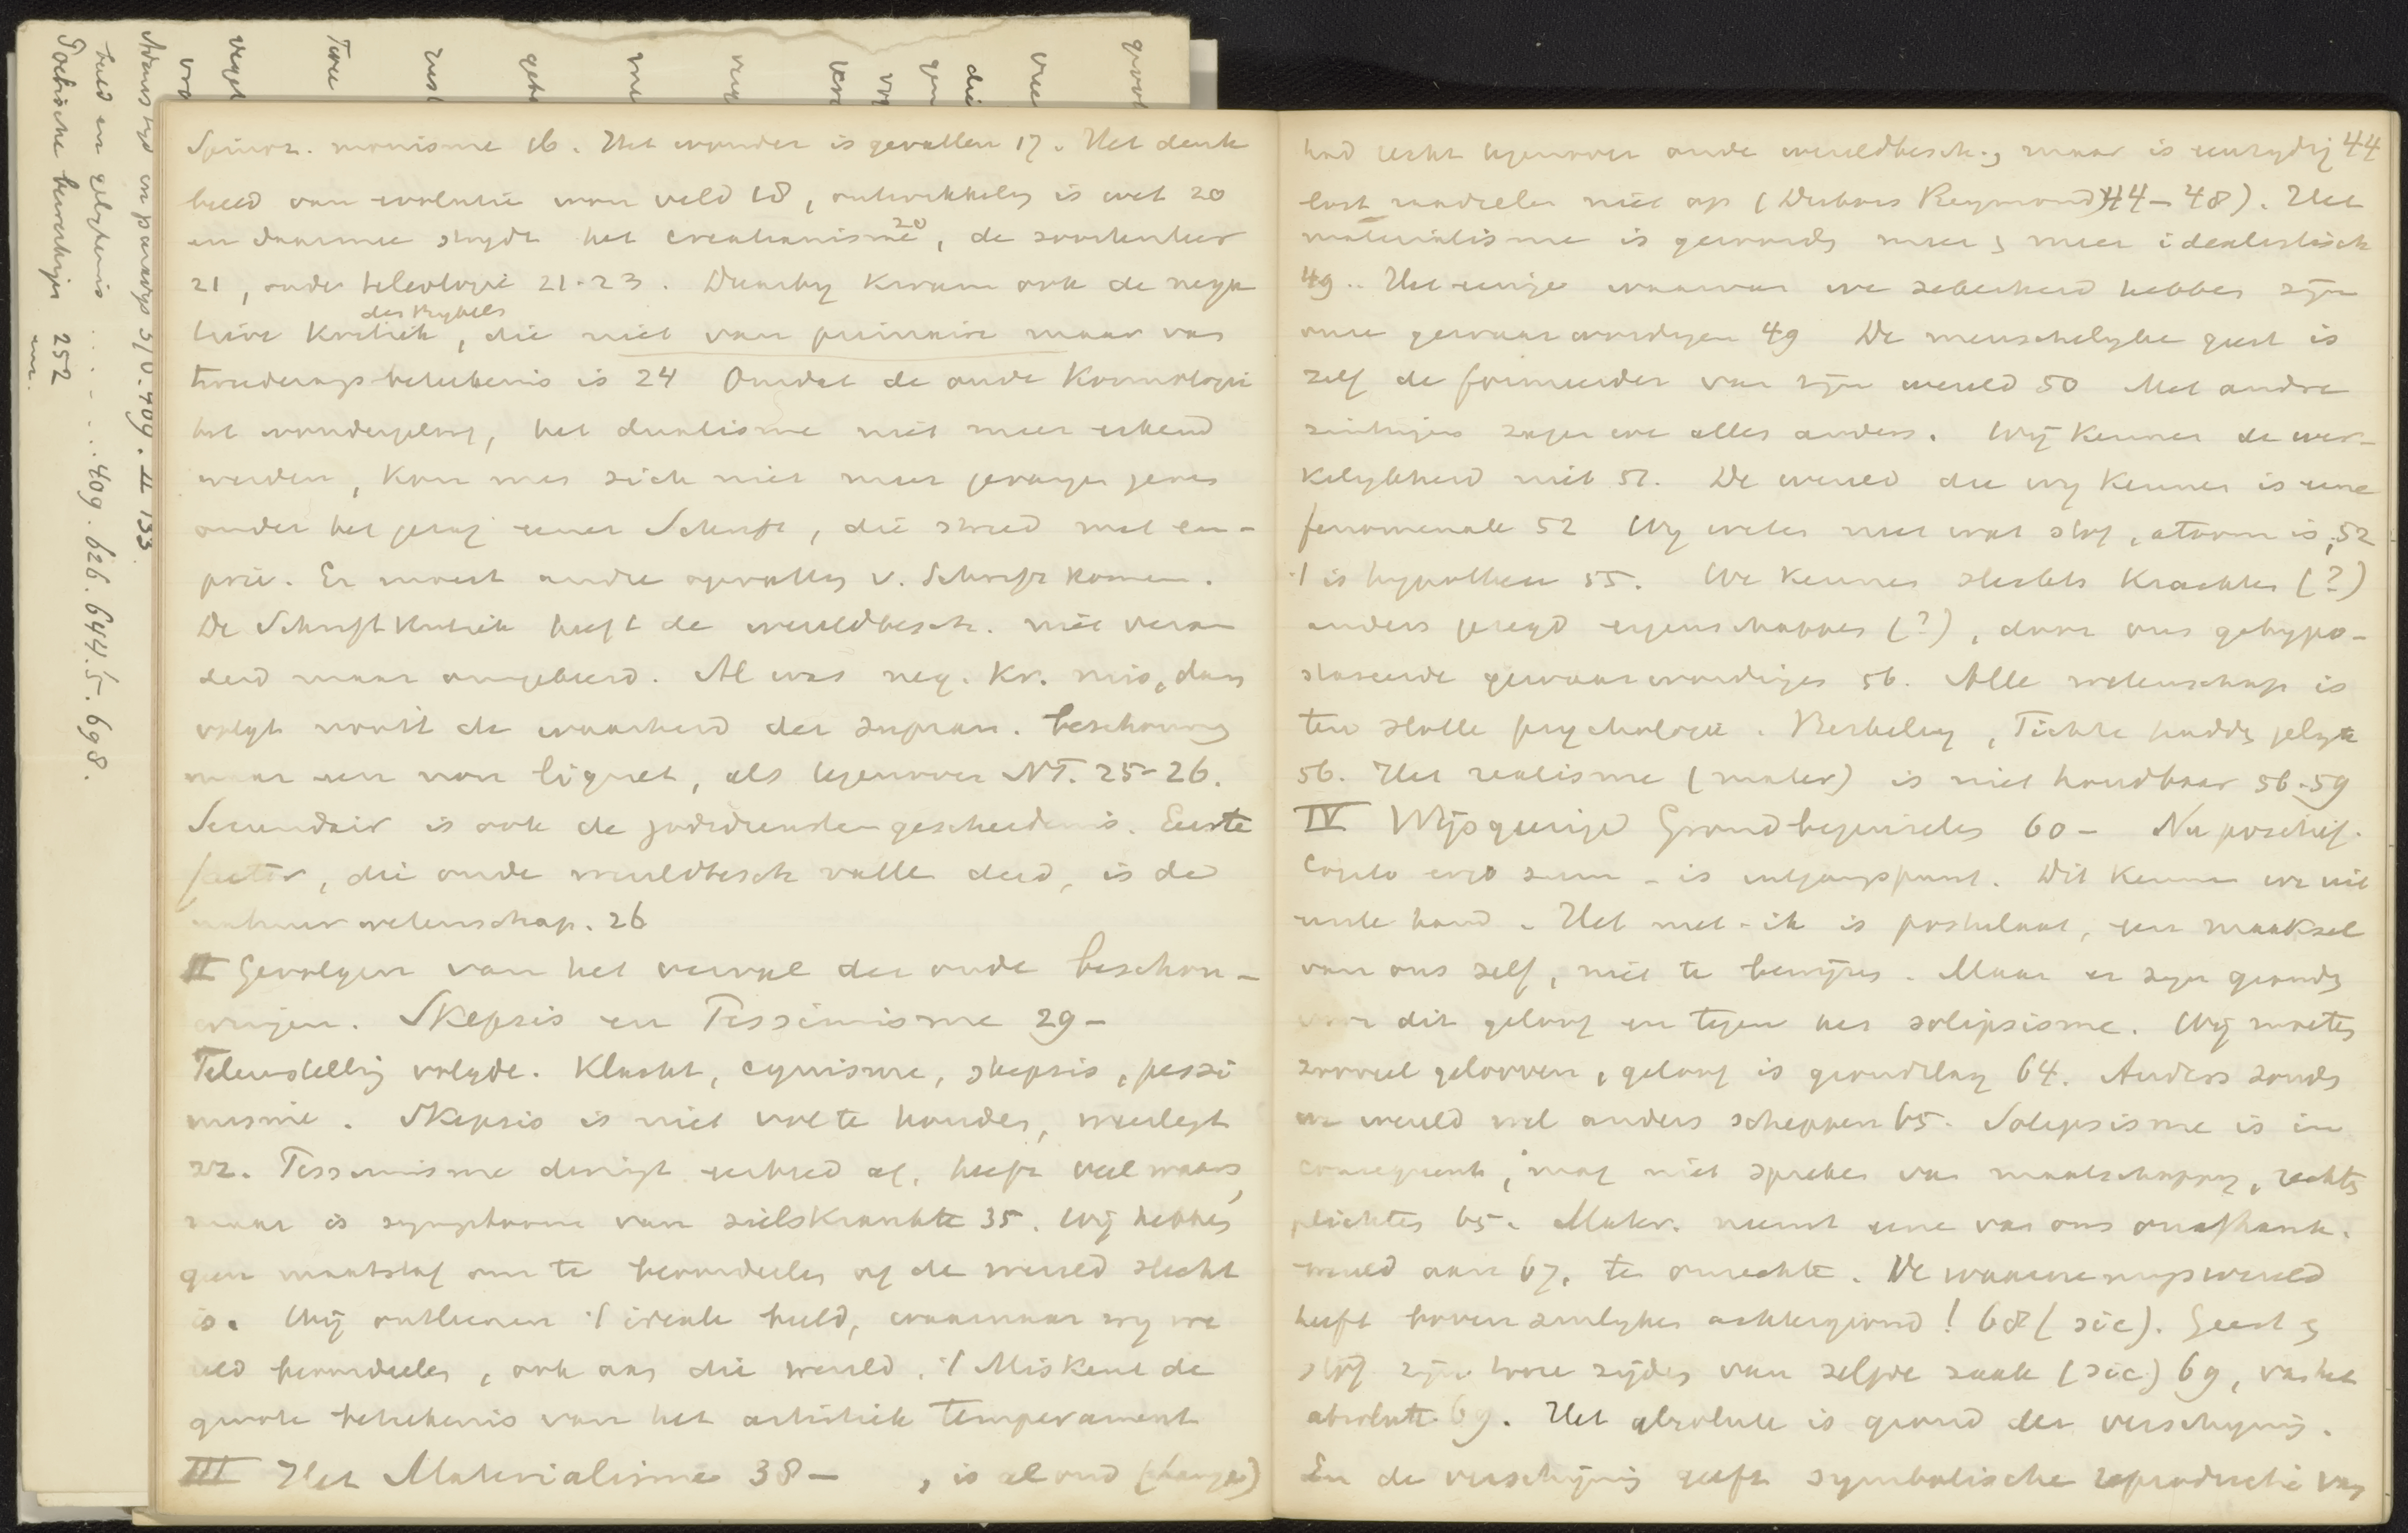 Spinoz. monisme 16. Het wonder is gevallen 17. Het denk
beeld van evolutie won veld 18, ontwikkeling is wet 20
en daarmee strijdt het creatianisme 20, de soortenleer
21, oude teleologie 21-23. Daarbij kwam ook de nega
tieve Kritiek des Bijbels, die niet van primaire maar van
beteekenis is 24 Omdat de oude Kosmologie
het wondergeloof, het dualisme niet meer erkend
werden, kon men zich niet meer gevangen geven
onder het gezag eener Schrift, die streed met em-
pirie. Er moest andre opvatting v. Schrift komen.
De Schriftkritiek heeft de wereldbesch. niet veran
derd maar omgekeerd. Al was neg. Kr. mis, dan
volgt nooit de waarheid der supran. beschouwing
maar een non liquet, als tegenover NT. 25-26.
Secundair is ook de godsdienstengeschiedenis. Eerste
factor, die oude wereldbesch vallen deed, is de
natuurwetenschap. 26
II Gevolgen van het verval der oude beschou-
wingen. Skepsis en Pessimisme 29-
Teleurstelling volgde. Klacht, cynisme, skepsis, pessi
misme. Skepsis is niet vol te houden, weerlegt
zz. Pessimisme dwingt eerbied af, heeft veel waars,
maar is symptoom van zielskrankte 35. Wij hebben
geen maatstaf om te beoordeelen of de wereld slecht
is. Wij ontleenen 't ideale beeld, waarnaar wij we
reld beoordeelen, ook aan die wereld. 't Miskent de
groote beteekenis van het artistiek temperament
III Het Materialisme 38- , is al oud (Lange)
had recht tegenover oude wereldbesch., maar is eenzijdig 44
lost raadselen niet op (Dubois Reymond 44-48). Het
materialisme is geworden meer en meer idealistisch
49. Het eenige waarvan we zekerheid hebben zijn
onze gewaarwordingen 49 De menschelijke geest is
zelf de formeerder van zijn wereld 50 Met andre
zintuigen zagen we alles anders. Wij kennen de wer-
kelijkheid niet 51. De wereld die wij kennen is eene
fenomenale 52 Wij weten niet wat stof, atoom is, 52
't is hypothese 55. We kennen slechts Krachten (?)
anders gezegd eigenschappen (?), door ons gehypo-
staseerde gewaarwordingen 56. Alle wetenschap is
ten slotte psychologie. Berkeley, Fichte hadden gelijk
56. Het realisme (mater) is niet houdbaar 56-59
IV Wijsgeerige Grondbeginselen 60- Nu positief.
Cogito ergo sum - is uitgangspunt. Dit kennen we uit
eerste hand. Het niet-ik is postulaat, een maaksel
van ons zelf, niet te bewijzen. Maar er zijn gronden
voor dit geloof en tegen het solipsisme. Wij moeten
zooveel gelooven, geloof is grondslag 64. Anders zouden
we wereld wel anders scheppen 65. Solipsisme is in
consequent, mag niet spreken van maatschappij, rechten
plichten 65. Mater. neemt eene van ons onafhank.
wereld aan 67, ten onrechte. De waarnemingswereld
heeft bovenzinlijken achtergrond! 68 (sic). Geest en
stof zijn twee zijden van zelfde zaak (sic) 69, van het
absolute 69. Het absolute is grond der verschijning.
En de verschijning geeft symbolische reproductie van
Adams tijd en paradijs 3/0. 409. II 133
beeld en gelijkenis . . . . . 409. 626. 644.5. 698.
252